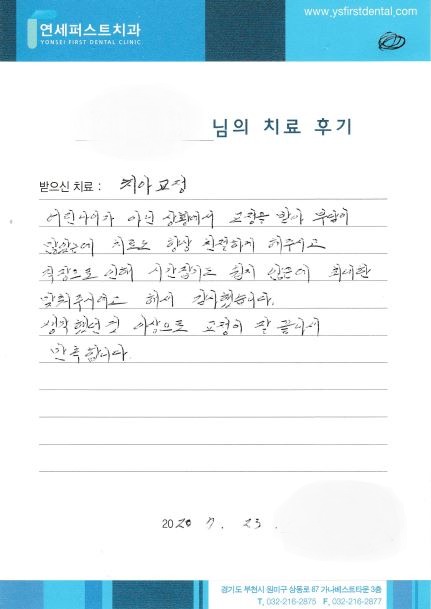 연세퍼스트치과
YONSEI FIRST DENTAL CLINIC
www.ysfirstdental.com
님의 치료 후기
받으신 치료 : 치아교정
어린나이가 아닌 상황에서 교정을 받아 부담이
많았는데 치료도 항상 친절하게 해주시고
직장으로 인해 시간잡기도 쉽지 않은데 최대한
맞춰주시려고 해서 감사했습니다.
생각했던 것 이상으로 교정이 잘 끝나서
만족합니다.
2020 7. 23.
경기도 부천시 원미구 상동로 87 가나베스트타운 3층
T. 032-216-2875 F. 032-216-2877